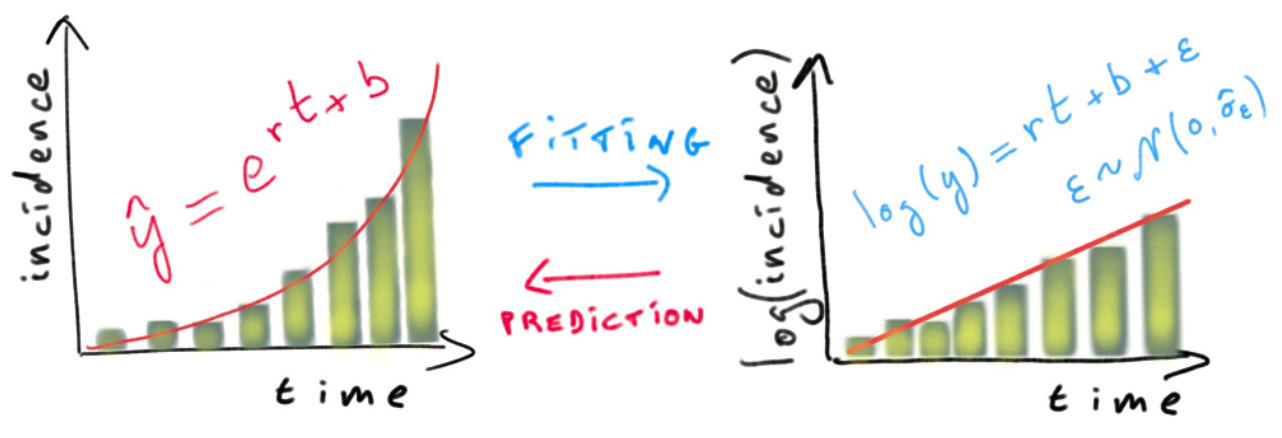 incidence
ŷ = e^{rt+b}
time
FITTING
PREDICTION
log(incidence)
log(y) = rt + b + ε
ε ~ N(0, σ̂_ε)
time